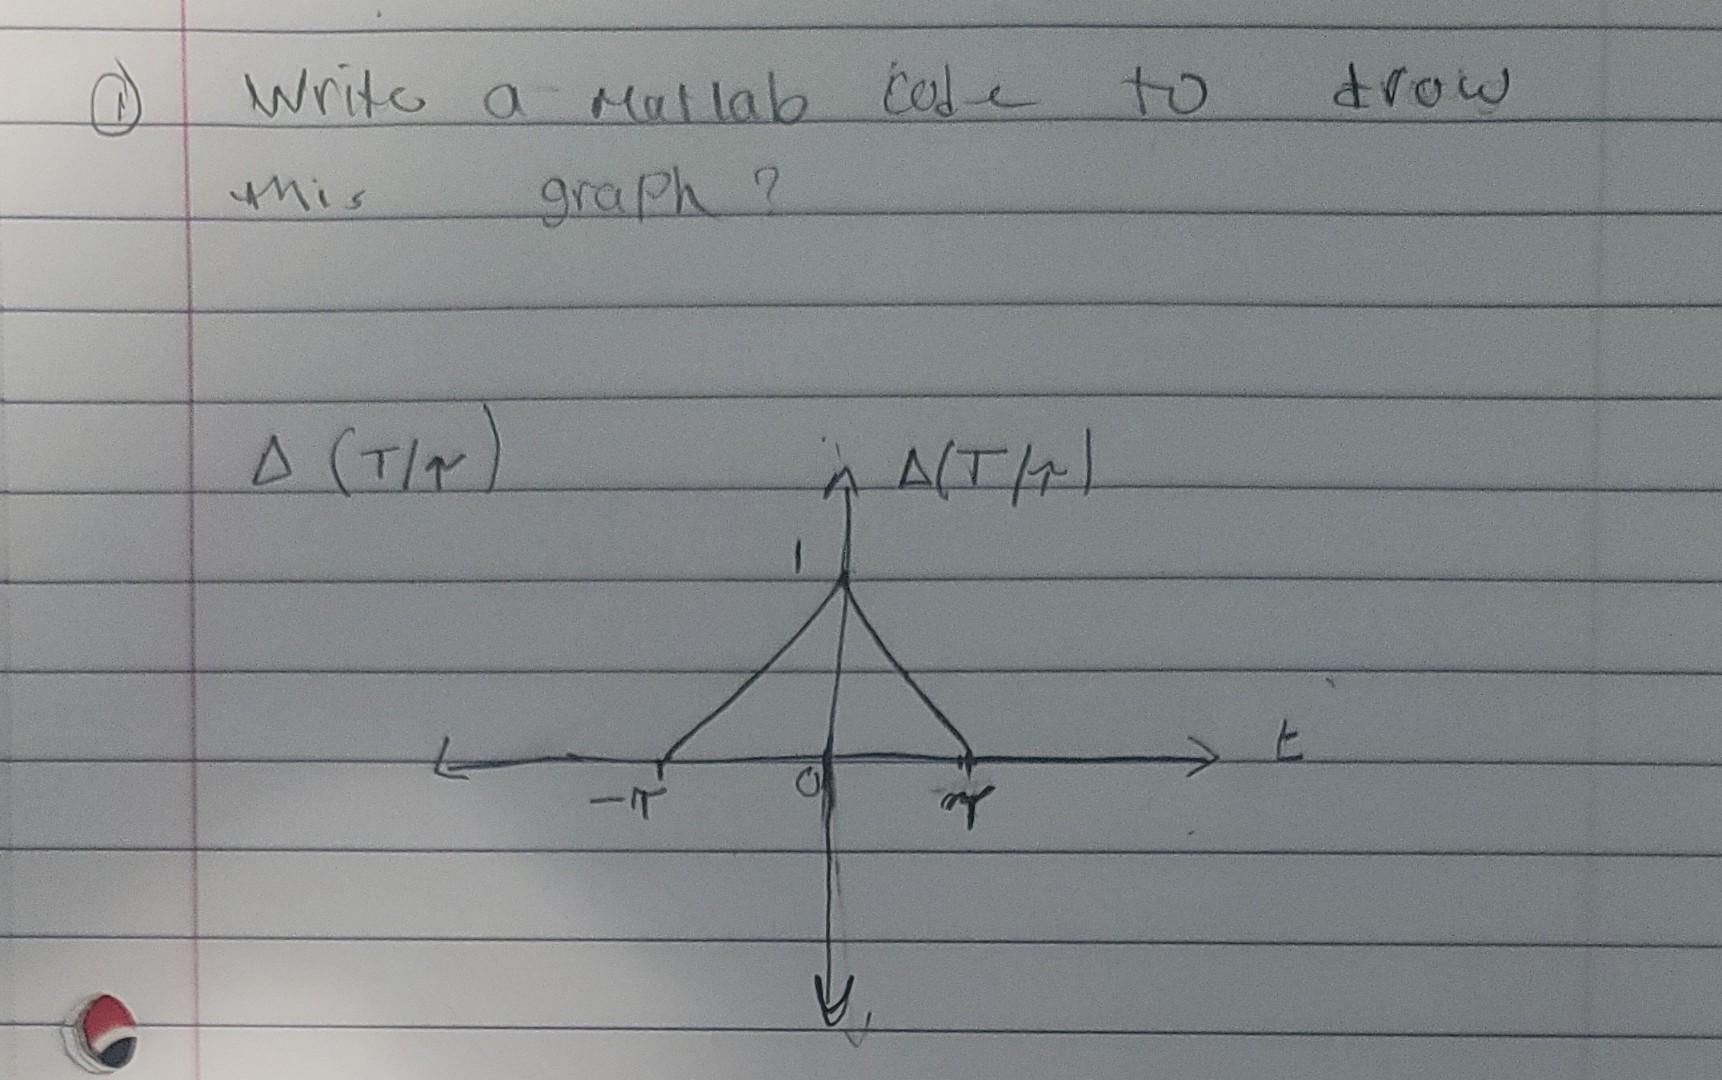 ① Write a Matlab code to draw
this graph ?
Δ (T/τ)
Δ(T/τ)
1
t
-τ 0 τ